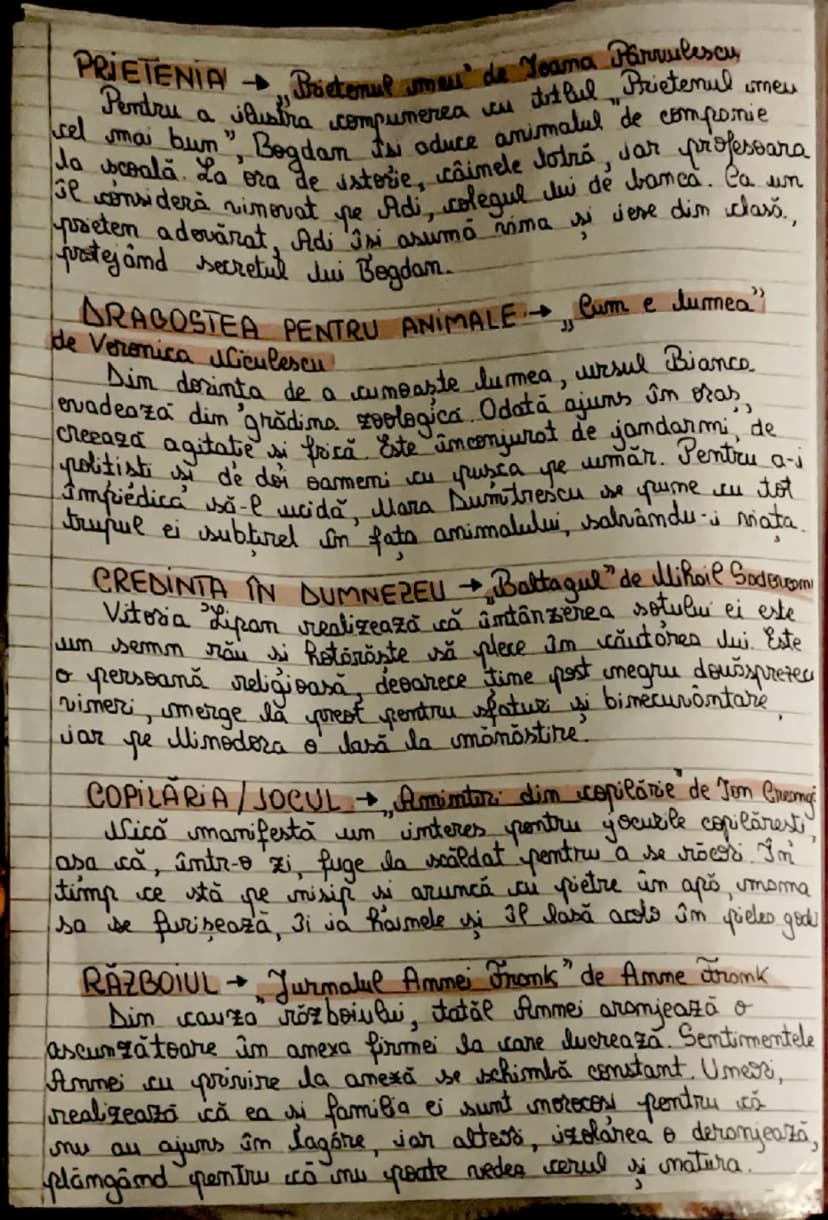 PRIETENIA → „Prietenul meu" de Ioana Pârvulescu
Pentru a ilustra compunerea cu titlul „Prietenul meu
cel mai bun", Bogdan își aduce animalul de companie
la școală. La ora de istorie, câinele latră, iar profesoara
îl consideră vinovat pe Adi, colegul lui de bancă. Ca un
prieten adevărat, Adi își asumă vina și iese din clasă,
protejând secretul lui Bogdan.
DRAGOSTEA PENTRU ANIMALE → „Cum e lumea"
de Veronica Niculescu
Din dorința de a cunoaște lumea, ursul Bianca
evadează din grădina zoologică. Odată ajuns în oraș,
creează agitație și frică. Este înconjurat de jandarmi, de
polițiști și de doi oameni cu pușca pe umăr. Pentru a-i
împiedica să-l ucidă, Mara Dumitrescu se pune cu tot
trupul ei subțirel în fața animalului, salvându-i viața.
CREDINȚA ÎN DUMNEZEU → „Baltagul" de Mihail Sadoveanu
Vitoria Lipan realizează că întânzerea soțului ei este
un semn rău și hotărăște să plece în căutarea lui. Este
o persoană religioasă, deoarece ține post negru douăsprezece
vineri, merge la preot pentru sfaturi și binecuvântare,
iar pe Minodora o lasă la mănăstire.
COPILĂRIA/JOCUL → „Amintiri din copilărie" de Ion Creangă
Nică manifestă un interes pentru jocurile copilărești,
așa că, într-o zi, fuge la scăldat pentru a se răcori. În
timp ce stă pe nisip și aruncă cu pietre în apă, mama
sa se furișează, îi ia hainele și îl lasă acolo în pielea goală
RĂZBOIUL → „Jurnalul Annei Frank" de Anne Frank
Din cauza războiului, tatăl Annei aranjează o
ascunzătoare în anexa firmei la care lucrează. Sentimentele
Annei cu privire la anexă se schimbă constant. Uneori,
realizează că ea și familia ei sunt norocoși pentru că
nu au ajuns în lagăre, iar alteori, izolarea o deranjează,
plângând pentru că nu poate vedea cerul și natura.